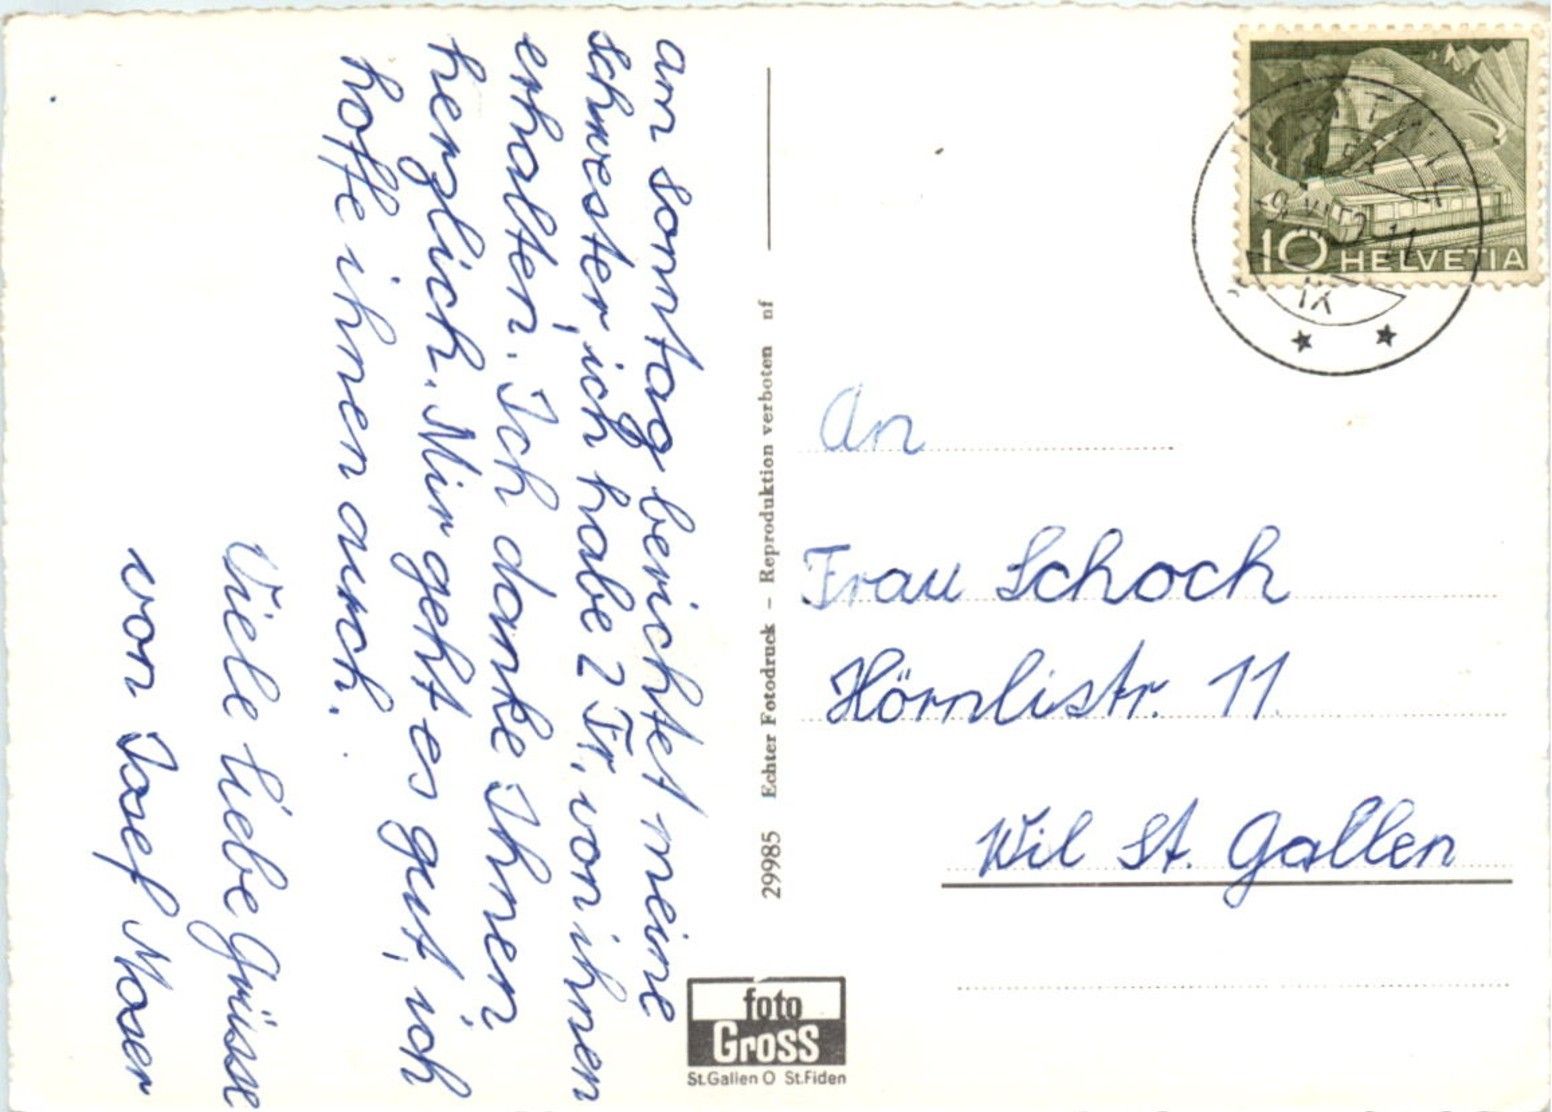 am Sonntag berichtet meine
Schwester, ich habe 2 Fr. von ihnen
erhalten. Ich danke Ihnen
herzlich. Mir geht es gut, ich
hoffe ihnen auch.
Viele liebe Grüsse
von Josef Moser
29985 Echter Fotodruck – Reproduktion verboten nf
foto
Gross
St.Gallen O St.Fiden
10 HELVETIA
IX
An
Frau Schoch
Hörnlistr. 11
Wil St. Gallen